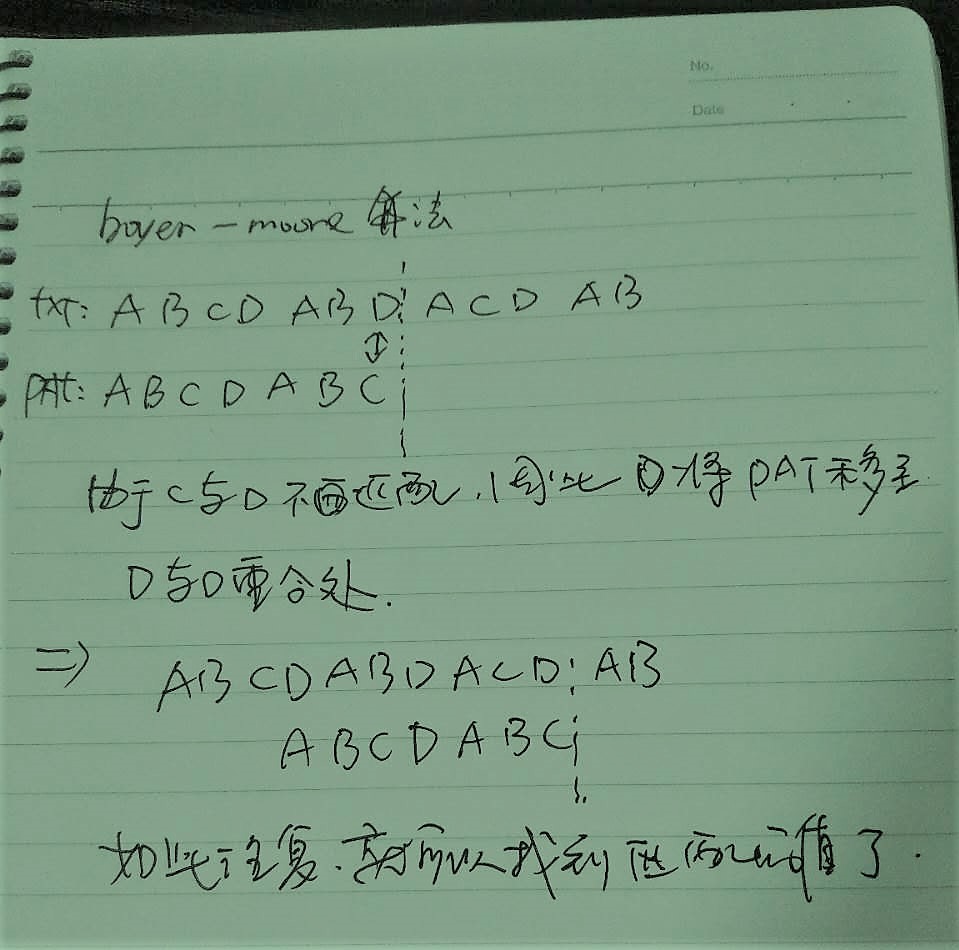 No.
Date
boyer-moore 算法
txt: A B C D A B D A C D A B
pat: A B C D A B C
由于 C 与 D 不匹配,因此 将 PAT 移至
D 与 D 重合处.
=> A B C D A B D A C D A B
A B C D A B C
如此往复.就可以找到匹配的值了.